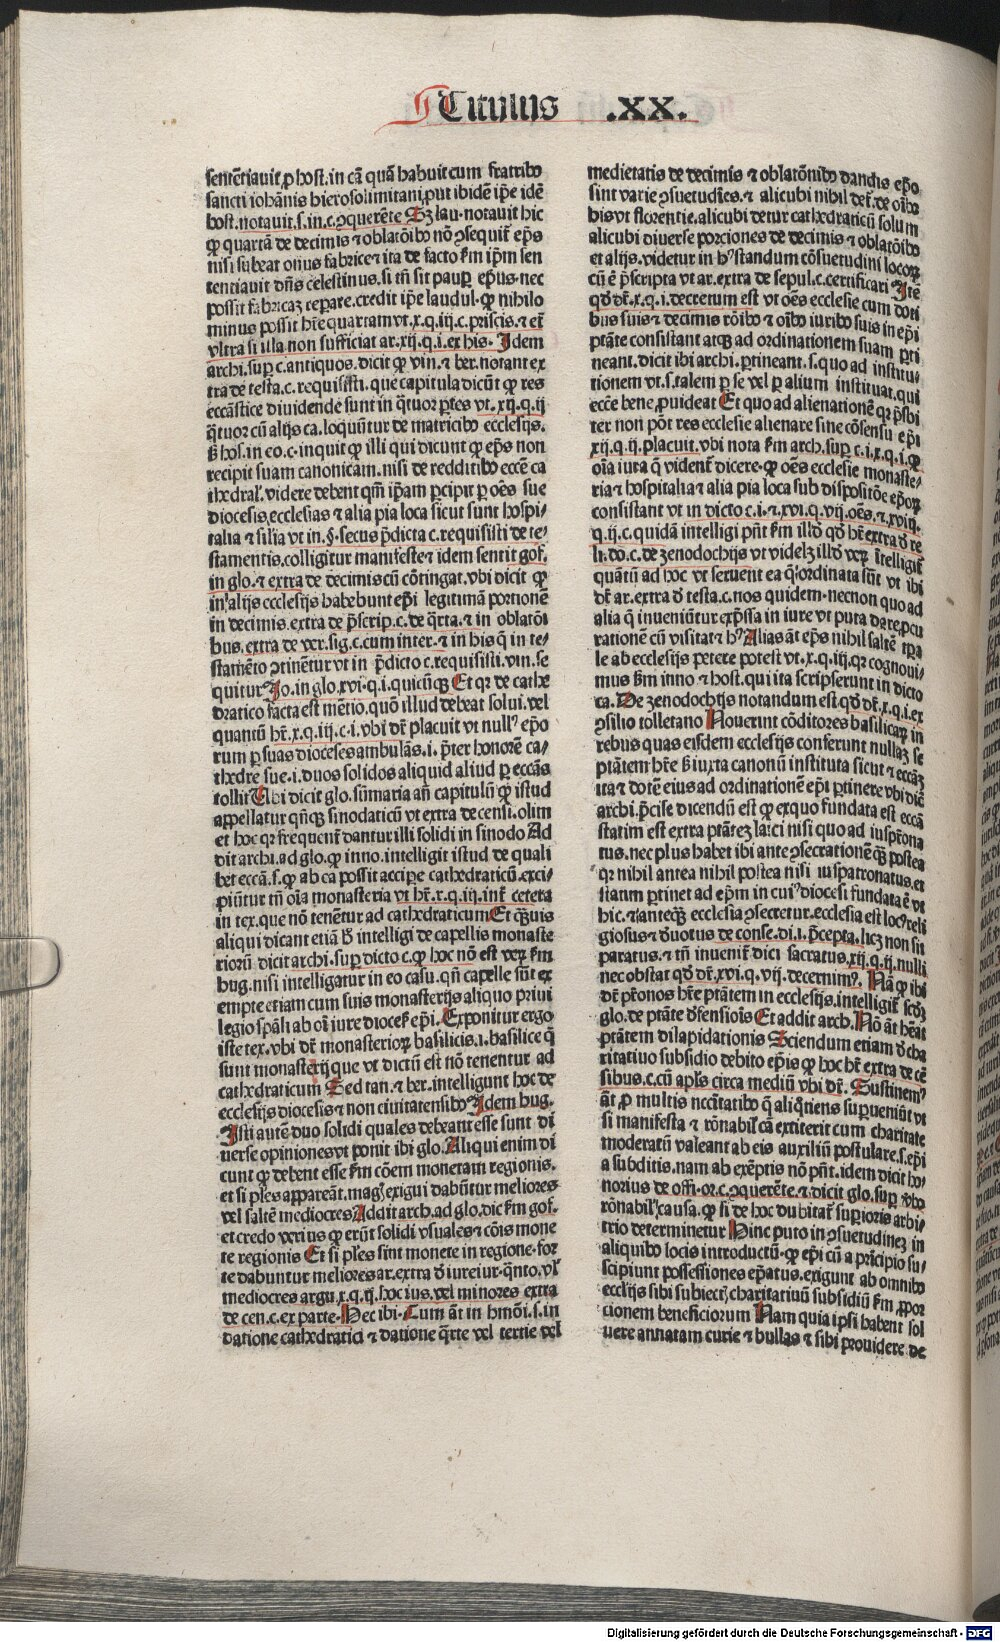 Titulus .XX.
sentẽtiauit ꝓ host. in cã quã habuit cum fratribꝰ
sancti iohãnis hierosolimitani, put ibidẽ ip̃e idẽ
host. notauit. s. in. c. ↄquerẽte Sꝫ lau. notauit hic
ꝙ quartã de decimis ⁊ oblatõibꝰ nõ ↄsequit̃ ep̃s
nisi subeat onus fabrice ⁊ ita de facto fm ip̃m sen
tentiauit dñs celestinus. si tñ sit paup̃ ep̃us. nec
possit fabricaꝫ reꝑare. credit ip̃e laudul. ꝙ nihilo
minus possit hr̃e quartam vt. x. q. iij. c. priscis. ⁊ et̃
vltra si illa non sufficiat ar. xij. q. i. ex his. Idem
archi. suꝑ c. antiquos. dicit ꝙ vin. ⁊ ber. notant ex
tra de testa. c. requisisti. que capitula dicũt ꝙ res
eccãstice diuidende sunt in q̃tuor ꝑtes vt. xij. q. ij
q̃tuor cũ alijs ca. loquũtur de matricibꝰ ecclesijs.
ꝭ hos. in eo. c. inquit ꝙ illi qui dicunt ꝙ ep̃s non
recipit suam canonicam. nisi de redditibꝰ eccẽ ca
thedral̃. videre debent qm̃ ip̃am ꝑcipit ꝑ oẽs sue
diocesis ecclesias ⁊ alia pia loca sicut sunt hospi-
talia ⁊ silia vt in. §. secus p̃dicta c. requisisti de te-
stamentis. colligitur manifeste ⁊ idem sentit gof.
in glo. ⁊ extra de decimis cũ cõtingat. vbi dicit ꝙ
in alijs ecclesijs habebunt ep̃i legitimã portionẽ
in decimis. extra de p̃scrip. c. de q̃rta. ⁊ in oblatõi
bus. extra de ver. sig. c. cum inter. ⁊ in his q̃ in te-
stamẽto ↄtinẽtur vt in p̃dicto c. requisisti. vin. se
quitur. Jo. in glo. xvi. q. i. quicũqꝫ Et qꝛ de cathe
dratico facta est mẽtio, quõ illud debeat solui. vel
quantũ hr̃. x. q. iij. c. i. vbi dr̃ placuit vt nullꝰ ep̃o
rum ꝑ suas dioceses ambulãs. i. p̃ter honorẽ ca-
thedre sue. i. duos solidos aliquid aliud ꝑ eccãs
tollit Vbi dicit glo. sũmaria añ capitulũ ꝙ istud
appellatur qñqꝫ sinodaticũ vt extra de censi. olim
et hoc qꝛ frequent̃ dantur illi solidi in sinodo Ad
dit archi. ad glo. ꝙ inno. intelligit istud de quali
bet eccã. s. ꝙ ab ea possit accipe cathedraticũ. exci-
piũtur tñ oĩa monasteria vt hr̃. x. q. iij. int̃ cetera
in tex. que nõ tenẽtur ad cathedraticum Et q̃ꝫuis
aliqui dicant etiã ꝭ intelligi de capellis monaste
riorũ dicit archi. suꝑ dicto c. ꝙ hoc nõ est veꝝ fm
hug. nisi intelligatur in eo casu. qñ capelle sũt ex
empte etiam cum suis monasterijs aliquo priui
legio spãli ab oĩ iure diocef. ep̃i. Exponitur ergo
iste tex. vbi dr̃ monasterioꝝ basilicis. i. basilice q̃
sunt monasterij que vt dictũ est nõ tenentur ad
cathedraticum Sed tan. ⁊ ber. intelligunt hoc de
ecclesijs diocesis ⁊ non ciuitatensibꝰ Idem hug.
Isti autẽ duo solidi quales debeant esse sunt di
uerse opiniones vt ponit ibi glo. Aliqui enim di
cunt ꝙ debent esse fm cõem monetam regionis.
et si ples appareãt. magꝭ exigui dabũtur meliores
vel saltẽ mediocres Addit arch. ad glo. dic fm gof.
et credo verius ꝙ erũt solidi vsuales ⁊ cõis mone
te regionis Et si ples sint monete in regione. for
te dabuntur meliores ar. extra ꝺ iureiur. q̃nto. vl̃
mediocres argu. x. q. ij. hoc ius. vel minores extra
de cen. c. ex parte. Hec ibi. Cum ãt in hmõi. s. in
datione cathedratici ⁊ datione q̃rte vel tertie vel
medietatis de decimis ⁊ oblatõnibꝰ dandis ep̃o
sint varie ↄsuetudĩes. ⁊ alicubi nihil det̃. de oĩbꝰ
his vt florentie. alicubi detur cathedraticũ solum
alicubi diuerse porciones de decimis ⁊ oblatõibꝰ
et alijs. videtur in hꝰ standum cõsuetudini locoꝝ
cũ ẽ p̃scripta vt ar. extra de sepul. c. certificari Ite
qꝺ dr̃. x. q. i. decretum est vt oẽs ecclesie cum doti
bus suis ⁊ decimis rõibꝰ ⁊ oĩbꝰ iuribꝰ suis in ep̃i
ptãte consistant atqꝫ ad ordinationem suam ꝑti
neant. dicit ibi archi. ꝑtineant. s. quo ad institu-
tionem vt. s. talem ꝑ se vel ꝑ alium instituat, qui
eccẽ bene ꝓuideat Et quo ad alienationẽ qꝛ p̃sbi
ter non põt res ecclesie alienare sine cõsensu ep̃i
xij. q. ij. placuit. vbi nota fm arch. suꝑ c. i. x. q. i. ꝙ
oĩa iura q̃ vident̃ dicere. ꝙ oẽs ecclesie monaste-
ria ⁊ hospitalia ⁊ alia pia loca sub dispositõe ep̃oꝝ
consistant vt in dicto c. i. ⁊. xvi. q. vij. oẽs. ⁊. xviij.
q. ij. c. quidã intelligi pñt fm illꝺ qꝺ hr̃ extra ꝺ re
li. do. c. de ꝫenodochijs vt videlꝫ illꝺ veꝝ ĩtelligit̃
quãtũ ad hoc vt seruent ea q̃ ordinata sũt vt ibi
dr̃ ar. extra ꝺ testa. c. nos quidem. necnon quo ad
alia q̃ inueniũtur exp̃ssa in iure vt puta dare, ꝓcu
rationẽ cũ visitat ⁊ hꝰ Alias ãt ep̃s nihil saltẽ tꝑa
le ab ecclesijs petere potest vt. x. q. iij. qꝛ cognoui-
mus fm inno ⁊ host. qui ita scripserunt in dicto
ca. De ꝫenodochijs notandum est. qꝺ dr̃. x. q. i. ex
ↄsilio tolletano Nouerint cõditores basilicaꝝ in
rebus quas eisdem ecclesijs conferunt nullaꝫ se
ptãtem hr̃e ꝭ iuxta canonũ instituta sicut ⁊ eccãꝫ
ita ⁊ dotẽ eius ad ordinationẽ ep̃i ꝑtinere vbi dic̃
archi. p̃cise dicendũ est ꝙ exquo fundata est eccã
statim est extra ptãtẽ laici nisi quo ad ius p̃tõna
tus. nec plus habet ibi ante ↄsecrationẽ q̃ꝫ postea
qꝛ nihil antea nihil postea nisi ius patronatus. et
statim ꝑtinet ad ep̃m in cuiꝰ diocesi fundata ẽ vt
hic. ⁊ anteq̃ꝫ ecclesia ↄsecretur. ecclesia est locꝰ reli
giosus ⁊ ꝺuotus de conse. di. i. p̃cepta. licꝫ non sit
paratus. ⁊ tñ inuenit̃ dici sacratus. xij. q. ij. nulli
nec obstat qꝺ dr̃. xvi. q. vij. decernimꝰ. Nã ꝙ ibi
dr̃ p̃tonos hr̃e ptãtem in ecclesijs. intelligit̃ scꝺꝫ
glo. de ptãte ꝺfensiõis Et addit arch. Nõ ãt hẽat
ptãtem dilapidationis Sciendum etiam ꝺ cha
ritatiuo subsidio debito ep̃is ꝙ hoc hr̃ extra de cẽ
sibus. c. cũ apl̃s circa mediũ vbi dr̃. Sustinemꝰ
ãt ꝓ multis nccĩtatibꝰ q̃ aliq̃tiens suꝑueniũt vt
si manifesta ⁊ rõnabil̃ cã extiterit cum charitate
moderatũ valeant ab eis auxiliũ postulare. s. ep̃i
a subditis. nam ab exẽptis nõ pñt. idem dicit ho-
norius de offi. or. c. ↄquerẽte. ⁊ dicit glo. suꝑ v̾bo
rõnabilꝭ causa. ꝙ si de hoc dubitat̃ suꝑioris arbi-
trio determinetur Hinc puto in ↄsuetudineꝫ in
aliquibꝰ locis introductũ. ꝙ ep̃i cũ a principio su-
scipiunt possessiones ep̃atus. exigunt ab omnibꝰ
eccl̃ijs sibi subiectꝭ charitatiuũ subsidiũ fm ꝓpor
cionem beneficiorum Nam quia ipsi habent sol
uere annatam curie ⁊ bullas ⁊ sibi prouidere de
Digitalisierung gefördert durch die Deutsche Forschungsgemeinschaft - DFG